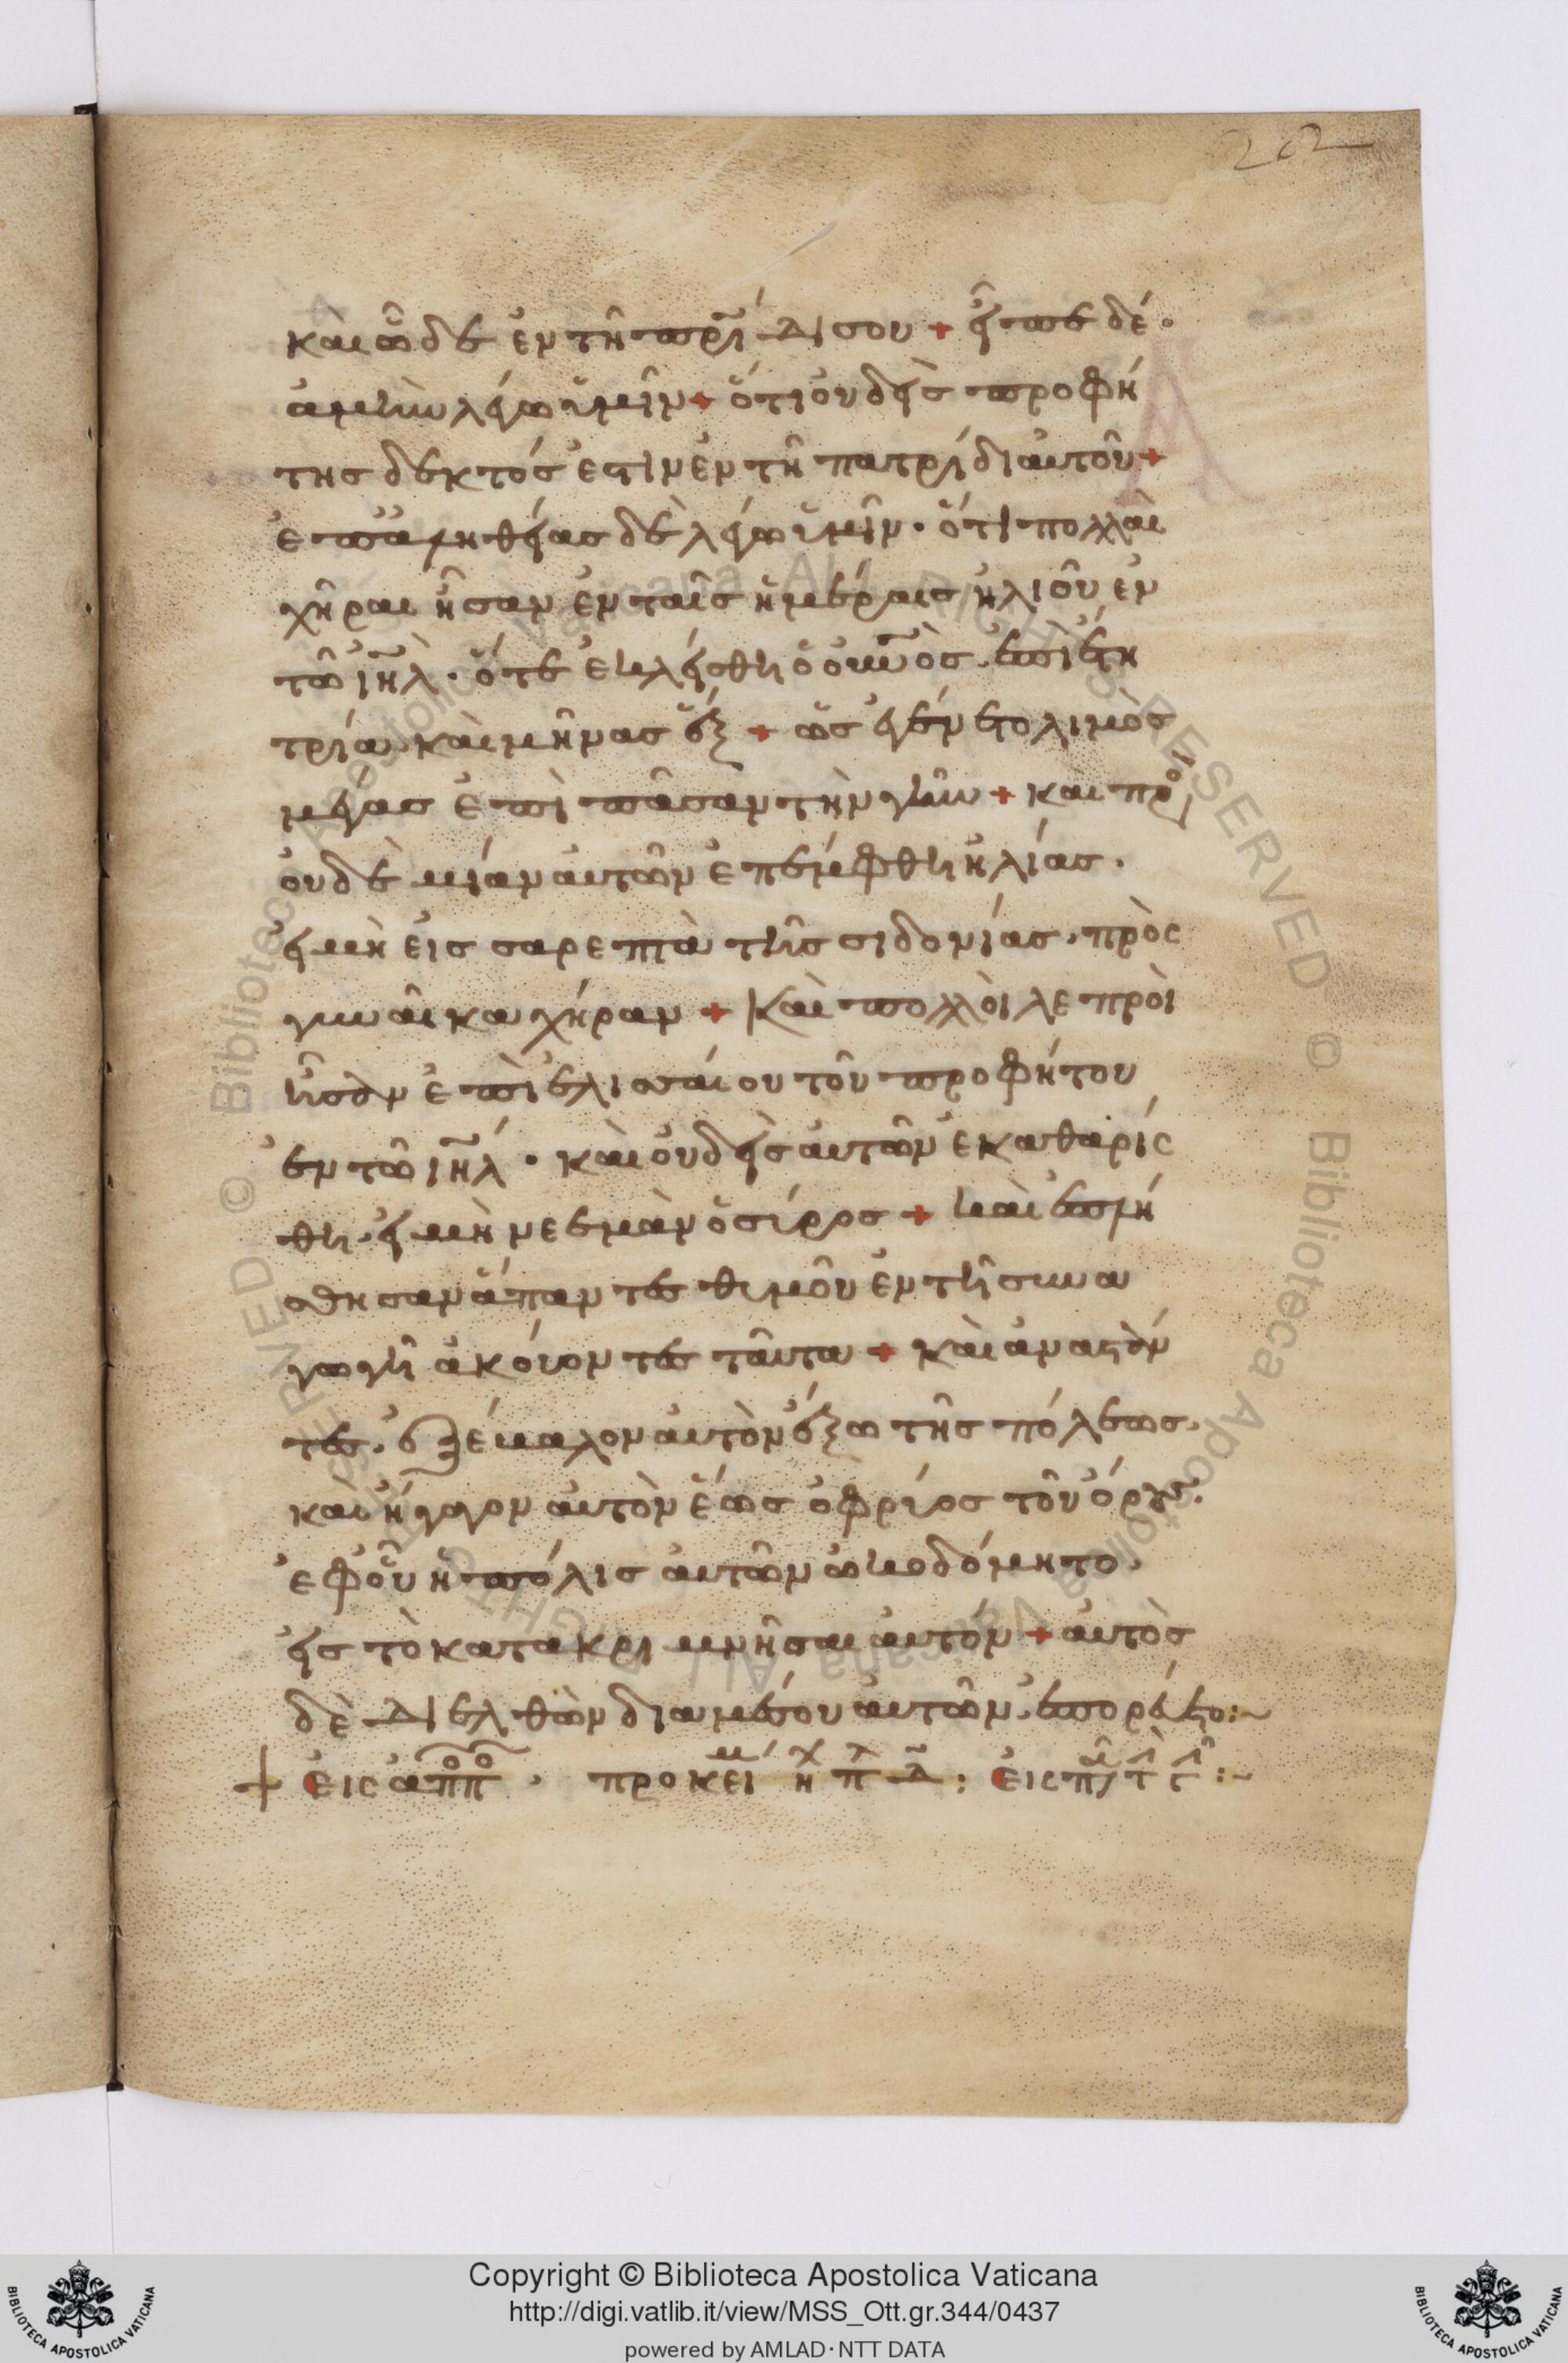 202
καὶ ὧδε ἐν τῆ πρΐδι σου + εἶπε δέ·
ἀμὴν λέγω ὑμῖν + ὅτι οὐδεὶς προφή
της δεκτός ἐστιν ἐν τῆ πατρίδι αὐτοῦ +
ἐπ ἀληθείας δὲ λέγω ὑμῖν · ὅτι πολλαὶ
χῆραι ἦσαν ἐν ταῖς ἡμέραις ἡλιοῦ ἐν
τῶ ἰηλ̀ · ὅτε ἐκλείσθη ὁ οὐνος̀ · ἐπὶ ἔτη
τρία καὶ μῆνας ἕξ + ὡς ἐγένετο λιμὸς
μέγας ἐπὶ πᾶσαν τὴν γῆν + καὶ πρὸ
οὐδὲ μίαν αὐτῶν ἐπέμφθη ἠλίας ·
εἰ μὴ εἰς σαρεπτὰ τῆς σιδονίας · πρὸς
γυναῖκα χήραν + Καὶ πολλοὶ λεπροὶ
ἦσαν ἐπὶ ἐλισσαίου τοῦ προφήτου
ἐν τῶ ἰηλ́ · καὶ οὐδεὶς αὐτῶν ἐκαθαρίσ
θη · εἰ μὴ νεεμὰν ὁ σύρος + καὶ ἐπλή
σθησαν ἅπαντες θυμοῦ ἐν τῆ συνα
γωγῆ ἀκούοντες ταῦτα + καὶ ἀναστάν
τες · ἐξέβαλον αὐτὸν ἔξω τῆς πόλεως ·
καὶ ἤγαγον αὐτὸν ἕως ὀφρύος τοῦ ὄρους ·
ἐφ οὗ ἡ πόλις αὐτῶν ὠκοδόμητο ·
εἰς τὸ κατακριμνῆσαι αὐτόν + αὐτὸς
δὲ διελθὼν δια μέσου αὐτῶν · ἐπορεύετο :~
Copyright © Biblioteca Apostolica Vaticana
http://digi.vatlib.it/view/MSS_Ott.gr.344/0437
powered by AMLAD·NTT DATA
BIBLIOTECA APOSTOLICA VATICANA
BIBLIOTECA APOSTOLICA VATICANA